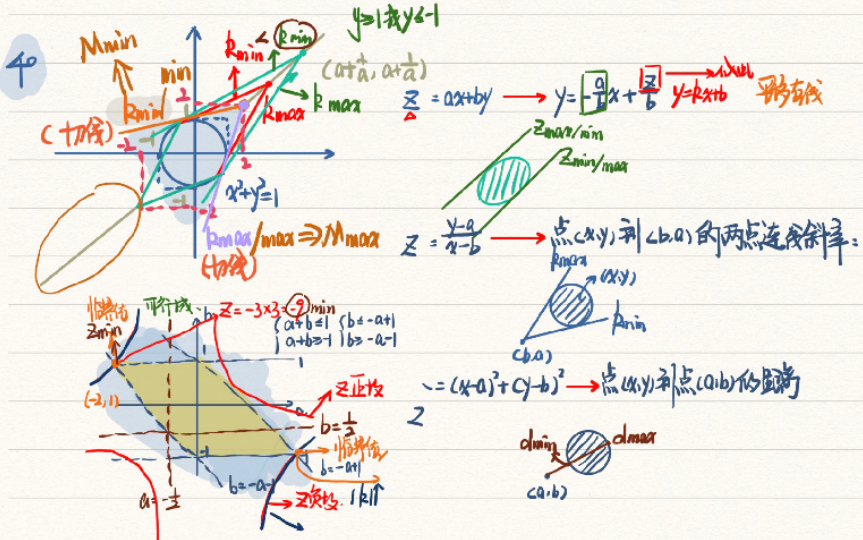 4°
y≥1或y≤-1
Mmin
min
kmin/
(切线)
kmin
< kmin
(a+1/a, a+1/a)
kmax
kmax
2
-1
-2
2
-1
-2
x²+y²=1
kmax/max⇒Mmax
(切线)
z=ax+by → y=-a/b x+z/b
y=kx+b
平移直线
zmax/min
zmin/max
z=(y-a)/(x-b) → 点(x,y)到(b,a)的两点连线斜率:
kmax
(x,y)
kmin
(b,a)
z=(x-a)²+(y-b)² → 点(x,y)到点(a,b)的距离
dmin
dmax
(a,b)
临界值
平行线
b
z=-3×3=-9 min
zmin
{a+b≤1 {b≤-a+1
a+b≥-1 b≥-a-1
1
1
z正投
(-2,1)
a
b=1/2
-1
临界值
b=-a+1
a=-1/2
b=-a-1
z负投
|k|↑